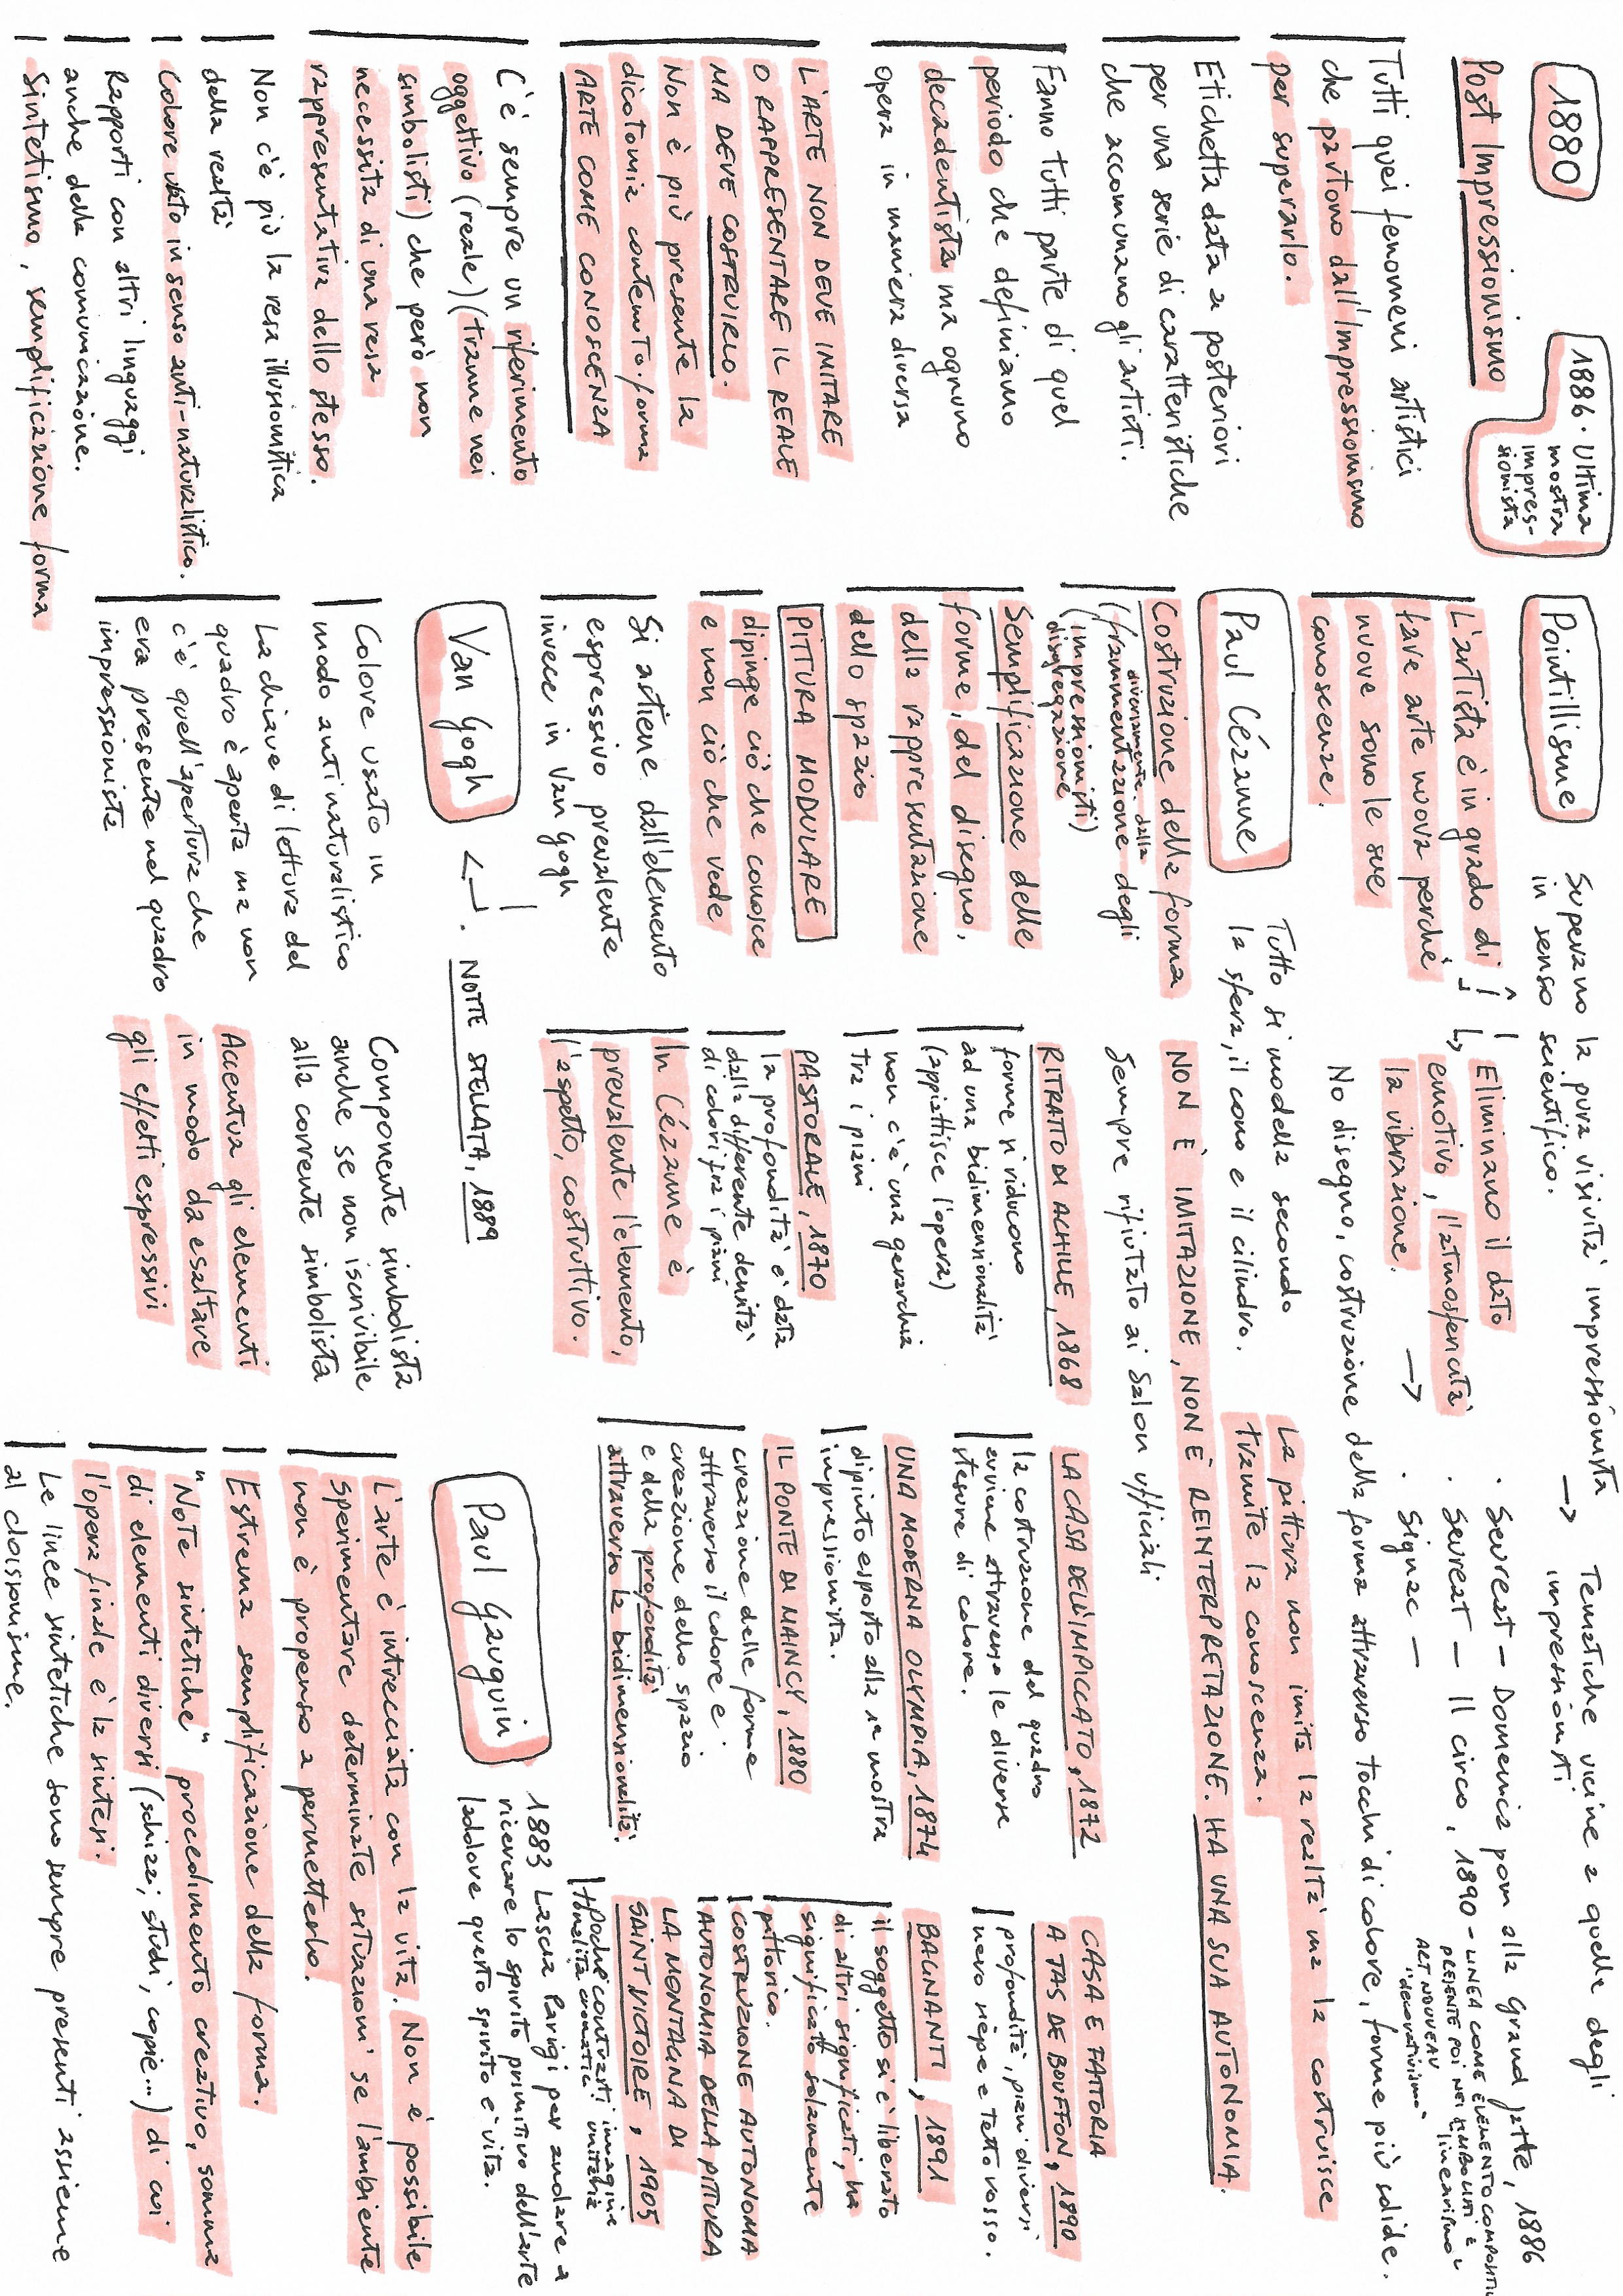 1880
1886 · Ultima
mostra
impres-
sionista
Post Impressionismo
Tutti quei fenomeni artistici
che partono dall'Impressionismo
per superarlo.
Etichetta data a posteriori
per una serie di caratteristiche
che accomunano gli artisti.
Fanno tutti parte di quel
periodo che definiamo
decadentista ma ognuno
opera in maniera diversa
L'ARTE NON DEVE IMITARE
O RAPPRESENTARE IL REALE
MA DEVE COSTRUIRLO.
Non è più presente la
dicotomia contenuto-forma
ARTE COME CONOSCENZA
C'è sempre un riferimento
oggettivo (reale) (tranne nei
simbolisti) che però non
necessita di una resa
rappresentativa dello stesso.
Non c'è più la resa illusionistica
della realtà
Colore usato in senso anti-naturalistico.
Rapporti con altri linguaggi
anche della comunicazione.
Sintetismo, semplificazione forma
Pointillisme
Superano la pura visività impressionista
in senso scientifico.
L'artista è in grado di
fare arte nuova perché
nuove sono le sue
conoscenze.
Eliminano il dato
emotivo, l'atmosfericità
la vibrazione.
→ Tematiche vicine a quelle degli
impressionisti
· Seureat - Domenica pom alla Grand Jatte, 1886
· Seureat - Il circo, 1890 - LINEA COME ELEMENTO COMPOSITIV
PRESENTE POI NEI SIMBOLISTI E
ART NOUVEAU "linearismo"
"decorativismo"
→ · Signac -
No disegno, costruzione della forma attraverso tocchi di colore, forme più solide.
Paul Cézanne
Tutto si modella secondo
la sfera, il cono e il cilindro.
La pittura non imita la realtà ma la costruisce
tramite la conoscenza.
NON È IMITAZIONE, NON È REINTERPRETAZIONE. HA UNA SUA AUTONOMIA.
Sempre rifiutato ai Salon ufficiali
Costruzione della forma
diversamente dalla
(frammentazione degli
(impressionisti)
disgregazione
Semplificazione delle
forme, del disegno,
della rappresentazione
dello spazio
PITTURA MODULARE
dipinge ciò che conosce
e non ciò che vede
Si astiene dall'elemento
espressivo prevalente
invece in Van Gogh
RITRATTO DI ACHILLE, 1868
forme si riducono
ad una bidimensionalità
(appiattisce l'opera)
non c'è una gerarchia
tra i piani
PASTORALE, 1870
la profondità è data
dalla differente densità
di colori fra i piani
In Cézanne è
prevalente l'elemento,
l'aspetto, costruttivo.
LA CASA DELL'IMPICCATO, 1872
la costruzione del quadro
avviene attraverso le diverse
stesure di colore.
UNA MODERNA OLYMPIA, 1874
dipinto esposto alla 1ª mostra
impressionista.
IL PONTE DI MAINCY, 1880
creazione delle forme
attraverso il colore e
creazione dello spazio
e della profondità
attraverso la bidimensionalità.
CASA E FATTORIA
A JAS DE BOUFFON, 1890
profondità, piani diversi
nero siepe e tetto rosso.
BAGNANTI, 1891
il soggetto si è liberato
di altri significati, ha
significato solamente
pittorico.
COSTRUZIONE AUTONOMA
AUTONOMIA DELLA PITTURA
LA MONTAGNA DI
SAINT VICTOIRE, 1905
poche contrasti immagine
tonalità cromatici unitaria
Van Gogh
· NOTTE STELLATA, 1889
Colore usato in
modo antinaturalistico
La chiave di lettura del
quadro è aperta ma non
c'è quell'apertura che
era presente nel quadro
impressionista
Componente simbolista
anche se non iscrivibile
alla corrente simbolista
Accentua gli elementi
in modo da esaltare
gli effetti espressivi
Paul Gauguin
1883 Lascia Parigi per andare a
ricercare lo spirito primitivo dell'arte
laddove questo spirito è vita.
L'arte è intrecciata con la vita. Non è possibile
sperimentare determinate situazioni se l'ambiente
non è propenso a permetterlo.
Estrema semplificazione della forma.
"Note sintetiche" procedimento creativo, somma
di elementi diversi (schizzi, studi, copie...) di cui
l'opera finale è la sintesi.
Le linee sintetiche sono sempre presenti assieme
al cloissonisme.